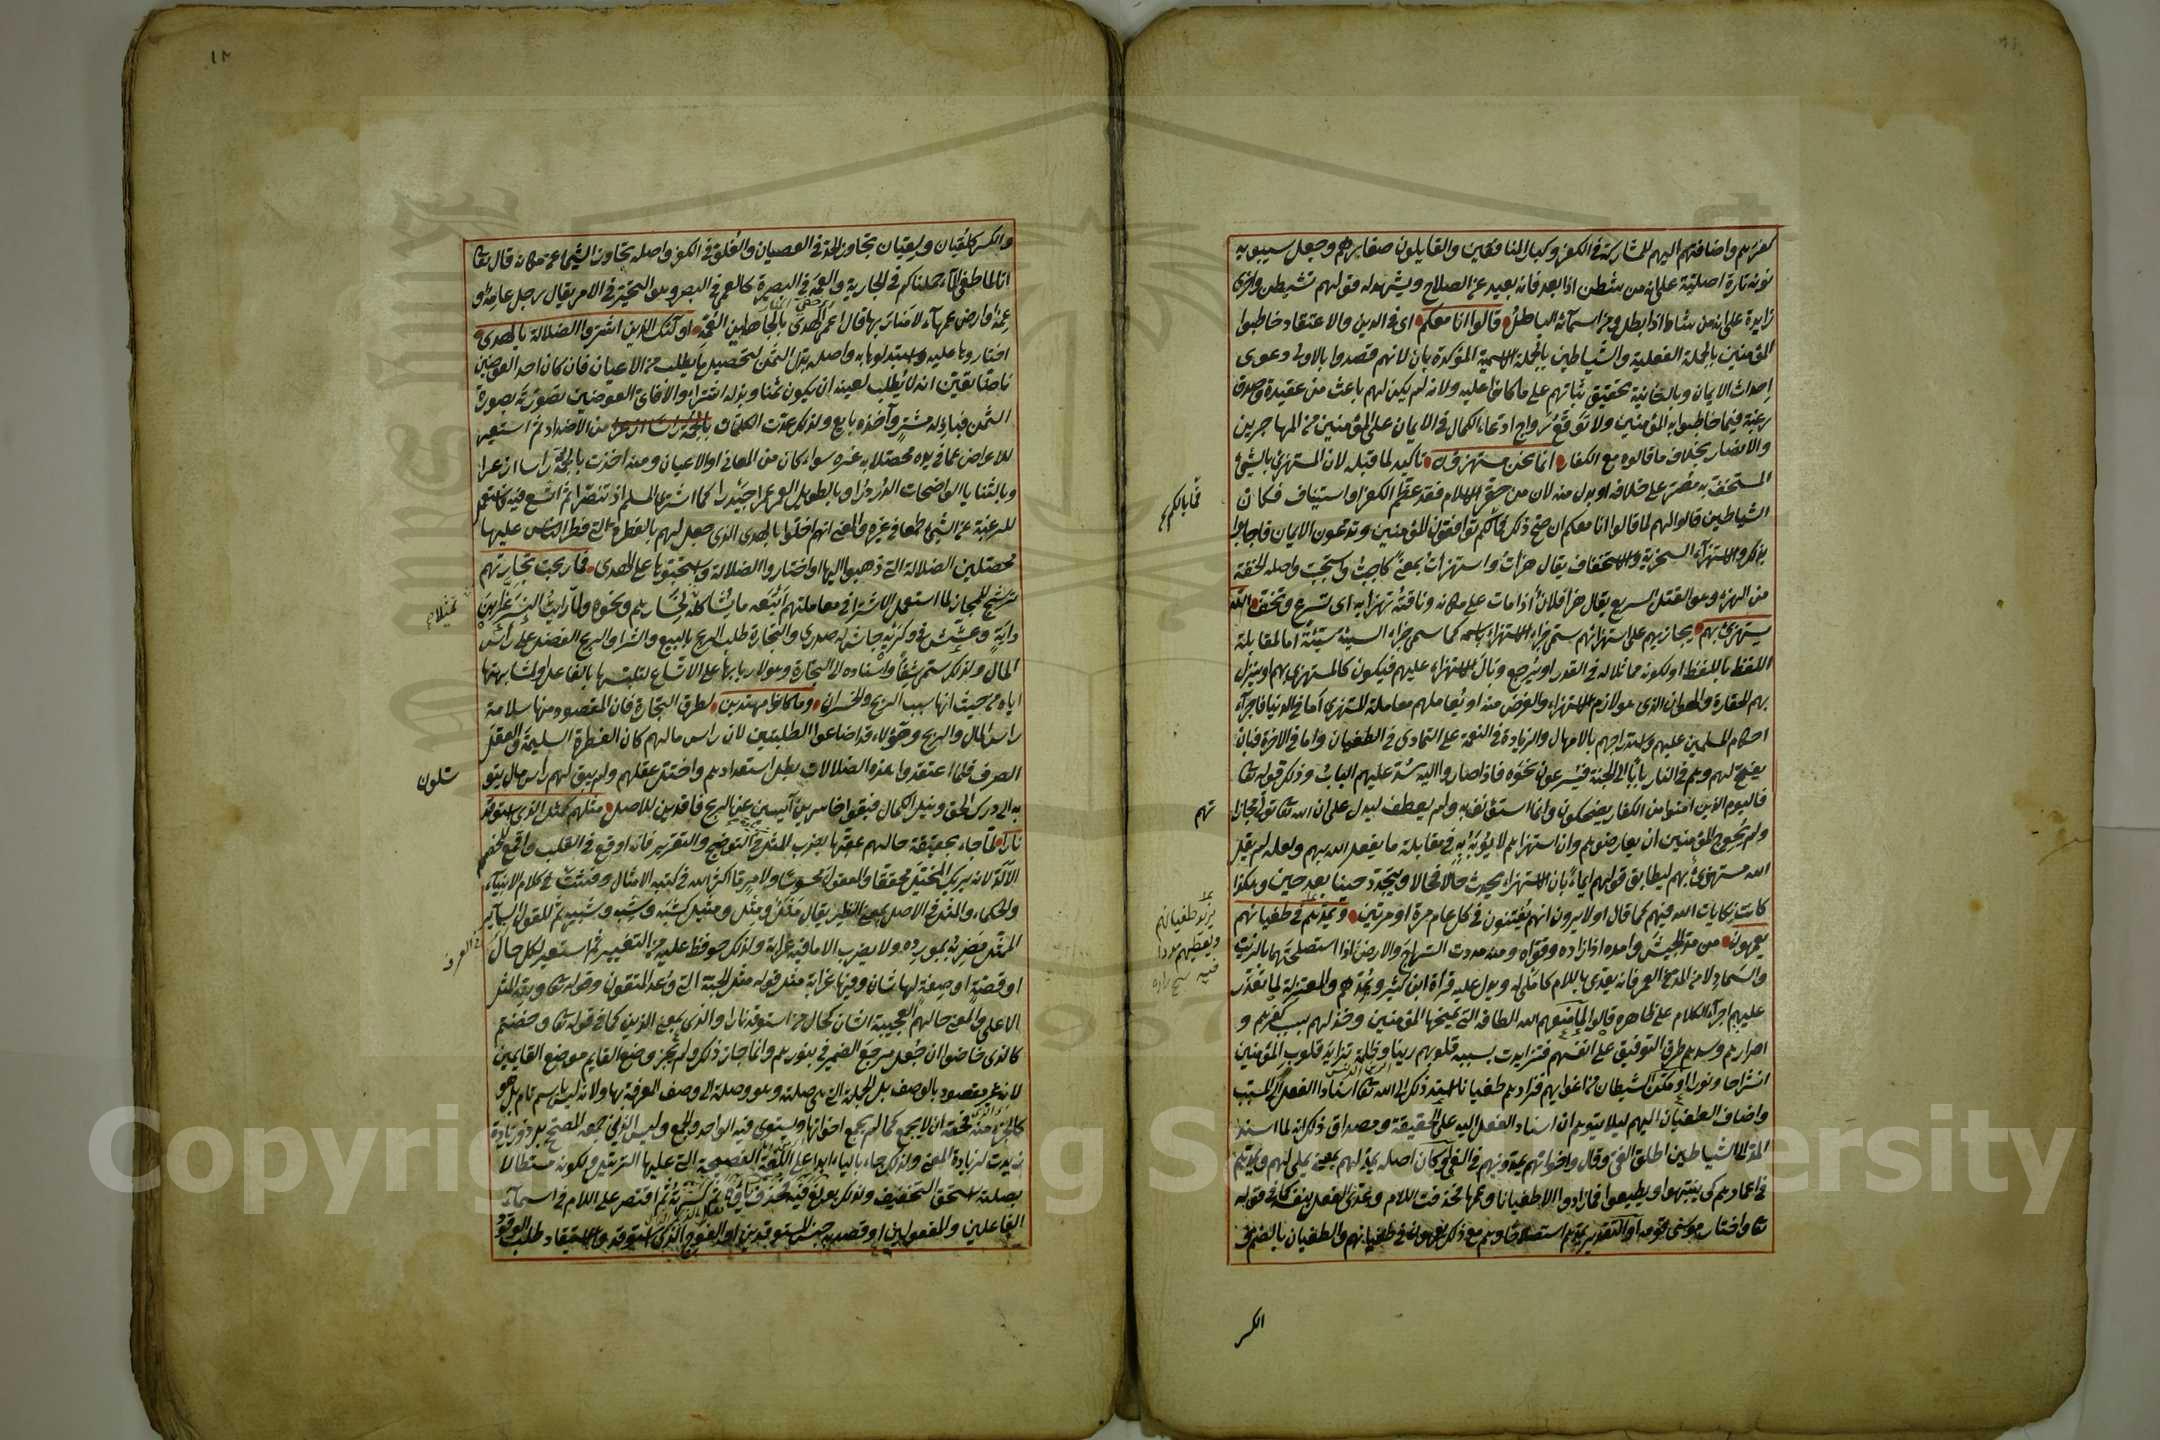 كفرهم واضافتهم اليهم للمشاركة في الكفر وكبار المنافقين والقايلون صغارهم وجعل سيبويه
نونه تارة اصلية على انه من شطن اذا بعد فانه بعيد عن الصلاح ويشهد له قولهم تشيطن واخرى
زايدة على انه من شاط اذا بطل ومن اسمائه الباطل قالوا انا معكم اى في الدين والاعتقاد خاطبوا
المؤمنين بالجملة الفعلية والشياطين بالجملة الاسمية المؤكدة بان لانهم قصدوا بالاولى دعوى
احداث الايمان وبالثانية تحقيق ثباتهم على ما كانوا عليه ولانه لم يكن لهم باعث من عقيدة وصدق
رغبة فيما خاطبوا به المؤمنين ولا توقع رواج ادعاء الكمال في الايمان على المؤمنين من المهاجرين
والانصار بخلاف ما قالوه مع الكفار انما نحن مستهزؤن تأكيد لما قبله لان المستهزئ بالشئ
المستخف به مصر على خلافه او بدل منه لان من حقر الاسلام فقد عظم الكفر او استيناف فكان
الشياطين قالوا لهم لما قالوا انا معكم ان صح ذلك فمالكم توافقون المؤمنين وتدعون الايمان فاجابوا
بذلك والاستهزآء السخرية والاستخفاف يقال هزأت واستهزأت بمعنى كاجبت واستجبت واصله الخفة
من الهزء وهو القتل السريع يقال هزأ فلان اذا مات على مكانه وناقته تهزأ به اى تسرع وتخف الله
يستهزئ بهم يجازيهم على استهزائهم سمى جزاء الاستهزاء باسمه كما سمى جزاء السيئة سيئة اما لمقابلة
اللفظ باللفظ او لكونه مماثلا له في القدر او يرجع وبال الاستهزاء عليهم فيكون كالمستهزئ بهم او ينزل
بهم الحقارة والهوان الذى هو لازم الاستهزاء والغرض منه او يعاملهم معاملة المستهزئ اما في الدنيا فاجرآء
احكام المسلمين عليهم واستدراجهم بالامهال والزيادة في النعمة على التمادى في الطغيان واما في الاخرة فبان
يفتح لهم وهم في النار بابا الى الجنة فيسرعون نحوه فاذا صاروا اليه سد عليهم الباب وذلك قوله تعا
فاليوم الذين امنوا من الكفار يضحكون وانما استؤنف به ولم يعطف ليدل على ان الله تعا تولى مجازا
ولم يحوج المؤمنين ان يعارضوهم وان استهزاءهم لا يؤبه به في مقابلة ما يفعل الله بهم ولعله لم يقل
الله مستهزئ بهم ليطابق قولهم ايماء بان الاستهزاء يحدث حالا فحالا ويتجدد حينا بعد حين وهكذا
كانت نكايات الله فيهم كما قال اولا يرون انهم يفتنون في كل عام مرة او مرتين ويمدهم في طغيانهم
يعمهون من مد الجيش وامده اذا زاده وقواه ومنه مددت السراج والارض اذا استصلحتهما بالزيت
والسماد لا من المد في العمر فانه يعدى باللام كاملى له ويدل عليه قراءة ابن كثير ويمدهم والمعتزلة لما تعذر
عليهم اجرآء الكلام على ظاهره قالوا لما منعهم الله الطافه التي يمنحها المؤمنين وخذلهم بسبب كفرهم و
اصرارهم وسدهم طرق التوفيق على انفسهم فتزايدت بسببه قلوبهم رينا وظلمة تزايد قلوب المؤمنين
انشراحا ونورا او مكن الشيطان من اغوايهم فزادهم طغيانا اسند ذلك الى الله تعا اسناد الفعل الى المسبب
واضاف الطغيان اليهم ليلا يتوهم ان اسناد الفعل اليه على الحقيقة ومصداق ذلك انه لما اسند
المد الى الشياطين اطلق الغى وقال واخوانهم يمدونهم في الغى او كان اصله يمد لهم بمعنى يملى لهم ويمد
في اعمارهم كى يتنبهوا ويطيعوا فما زادوا الا طغيانا وعمها فحذفت اللام وعدى الفعل بنفسه كما في قوله
تعا واختار موسى قومه او التقدير يمدهم استصلاحا وهم مع ذلك يعمهون في طغيانهم والطغيان بالضم
الكسر
فمابالكم
تهم
يزيد طغيانهم
والكسر كلقيان ولقيان تجاوز الحد في العصيان والغلو في الكفر واصله تجاوز الشئ عن مكانه قال تعا
انا لما طغى المآء حملناكم في الجارية والعمه في البصيرة كالعمى في البصر وهو التحير في الامر يقال رجل عامه و
عمه وارض عمهآء لا منار بها قال اعمى الهدى بالجاهلين العمه اولئك الذين اشتروا الضلالة بالهدى
اختاروها عليه واستبدلوها به واصله بذل الثمن لتحصيل ما يطلب من الاعيان فان كان احد العوضين
ناضا تعين انه لا يطلب لعينه ان يكون ثمنا وبذله اشتراء والا فاى العوضين تصورته بصورة
الثمن فباذله مشتر وآخذه بايع ولذلك عدت الكلمتان من الاضداد ثم استعير
للاعراض عما في يده محصلا به غيره سواء كان من المعانى او الاعيان ومنه اخذت بالجمة راسا ازعرا
وبالثنايا الواضحات الدردرا وبالطويل العمر عمرا جيدرا كما اشترى المسلم اذ تنصرا ثم اتسع فيه فاستعمل
للرغبة عن الشئ طمعا في غيره والمعنى انهم اخلوا بالهدى الذى جعل لهم بالفطرة التي فطر الناس عليها
محصلين الضلالة التي ذهبوا اليها او اختاروا الضلالة واستحبوها على الهدى فما ربحت تجارتهم
ترشيح للمجاز لما استعمل الاشتراء في معاملتهم اتبعه ما يشاكله تمثيلا لخسارهم ونحوه ولما رأيت النسر عز ابن
داية وعشش في وكريه جاش له صدرى والتجارة طلب الربح بالبيع والشرا والربح الفضل على رأس
المال ولذلك سمى شفا واسناده الى التجارة وهو لاربابها على الاتساع لتلبسها بالفاعل او لمشابهتها
اياه من حيث انها سبب الربح والخسران وما كانوا مهتدين لطرق التجارة فان المقصود منها سلامة
راس المال والربح وهؤلاء قد اضاعوا الطلبتين لان راس مالهم كان الفطرة السليمة والعقل
الصرف فلما اعتقدوا هذه الضلالات بطل استعدادهم واختل عقلهم ولم يبق لهم رأس مال يتو
به الى درك الحق ونيل الكمال فبقوا خاسرين آيسين عن الربح فاقدين للاصل مثلهم كمثل الذى استوقد
نارا لما جاء بحقيقة حالهم عقبها بضرب المثل في التوضيح والتقرير فانه اوقع في القلب واقمع للخصم
الالد لانه يريك المتخيل محققا والمعقول محسوسا ولامر ما اكثر الله في كتبه الامثال وفشت في كلام الانبيآء
والحكماء والمثل في الاصل بمعنى النظير يقال مثل ومثل ومثيل كشبه وشبه وشبيه ثم للقول السائر
الممثل مضربه بمورده ولا يضرب الا ما فيه غرابة ولذلك حوفظ عليه من التغيير ثم استعير لكل حال
او قصة او صفة لها شان وفيها غرابة مثل قوله مثل الجنة التي وعد المتقون وقوله تعا ولله المثل
الاعلى والمعنى حالهم العجيبة الشان كحال من استوقد نارا والذى بمعنى الذين كما في قوله تعا وخضتم
كالذى خاضوا ان جعل مرجع الضمير في بنورهم وانما جاز ذلك ولم يجز وضع القايم موضع القايمين
لانه غير مقصود بالوصف بل الجملة التي هى صلته وهو وصلة الى وصف المعرفة بها ولانه ليس باسم تام بل هو
كالجزء منه فحقه ان لا يجمع كما لم يجمع اخواتها ويستوى فيه الواحد والجمع وليس الذين جمعه المصحح بل ذو زيادة
زيدت لزيادة المعنى ولذلك جاء بالياء ابدا على اللغة الفصيحة التي عليها التنزيل ولكونه مستطالا
بصلته استحق التخفيف ولذلك بولغ فيه فحذف ياؤه ثم كسرته ثم اقتصر على اللام في اسمآء
الفاعلين والمفعولين او قصد به جنس المستوقدين او الفوج الذى استوقد والاستيقاد طلب الوقود
تمثيلا
سلون
في العرف